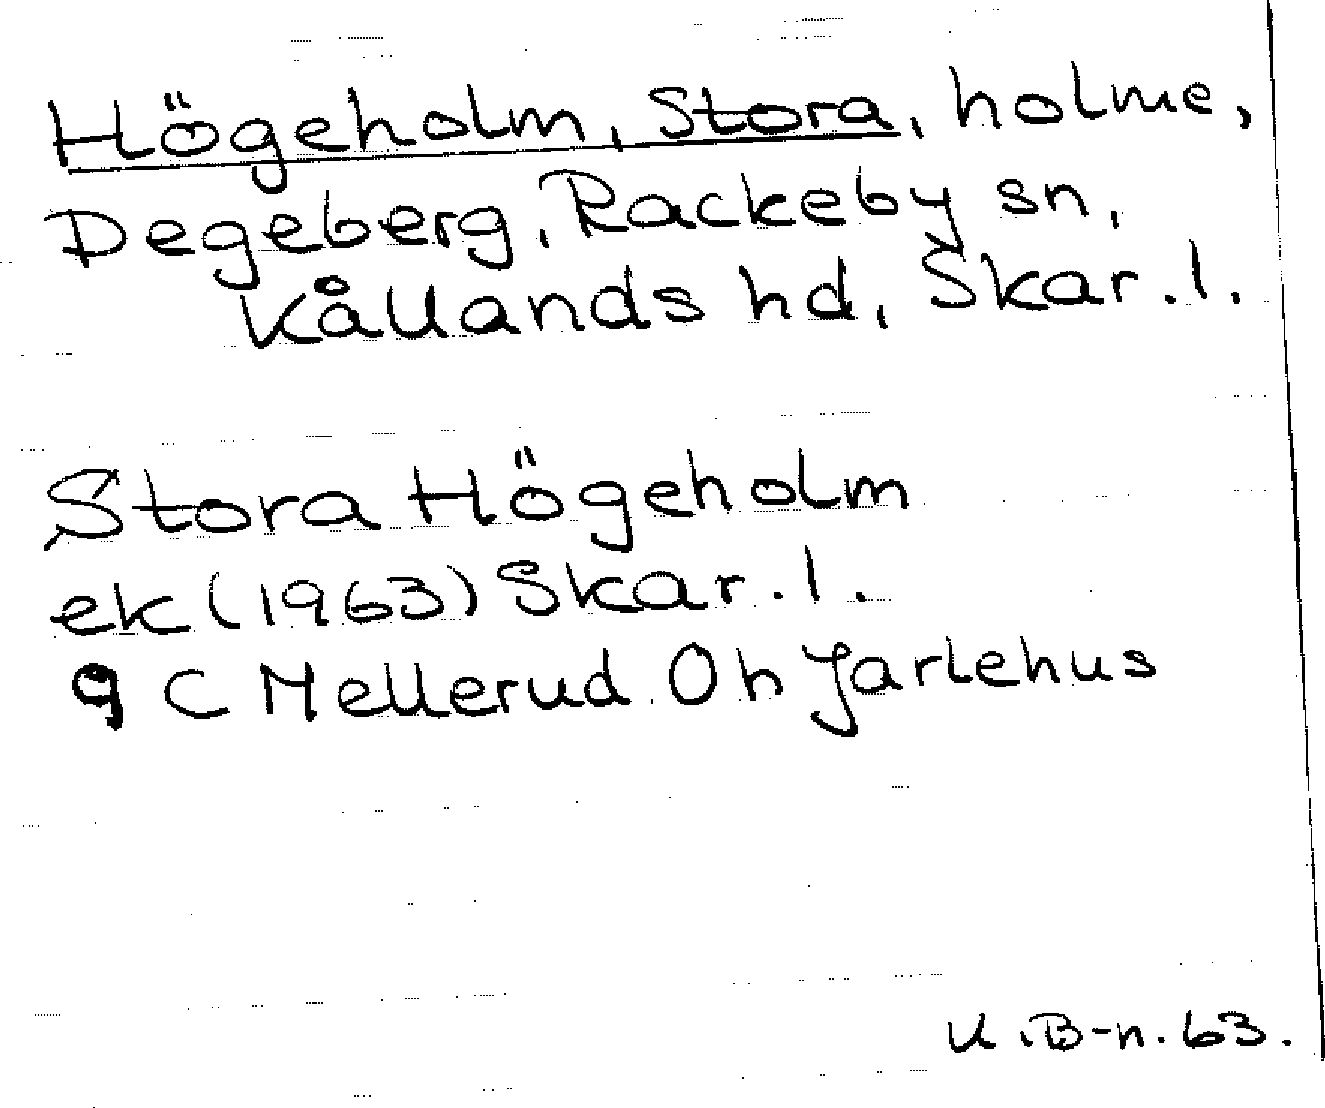 Högeholm, Stora, holme,
Degeberg, Rackeby sn,
Kållands hd, Skar. l.
Stora Högeholm
ek (1963) Skar. l.
9 C Mellerud Oh Jarlehus
U. B-n. 63.